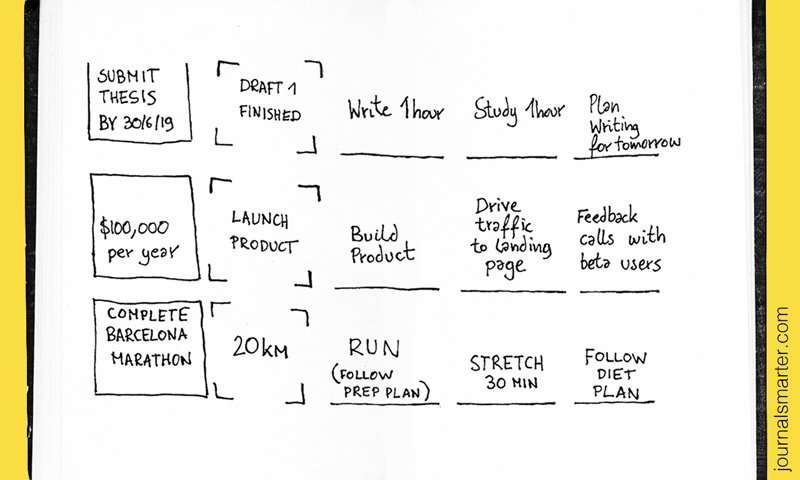 SUBMIT
THESIS
BY 30/6/19
DRAFT 1
FINISHED
Write 1 hour
Study 1 hour
Plan
Writing
for tomorrow
$100,000
per year
LAUNCH
PRODUCT
Build
Product
Drive
traffic
to landing
page
Feedback
calls with
beta users
COMPLETE
BARCELONA
MARATHON
20KM
RUN
(FOLLOW
PREP PLAN)
STRETCH
30 MIN
FOLLOW
DIET
PLAN
journalsmarter.com